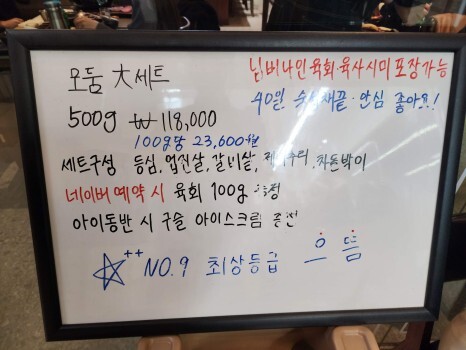 모둠 大 세트
넘버나인 육회 육사시미 포장가능
500g ₩ 118,000
40일 숙성새끝·안심 좋아요!
100g당 23,600원
세트구성 등심, 업진살, 갈비살, 차돌박이
네이버 예약 시 육회 100g
아이동반 시 구슬 아이스크림 증정
☆++ NO.9 최상등급 으뜸